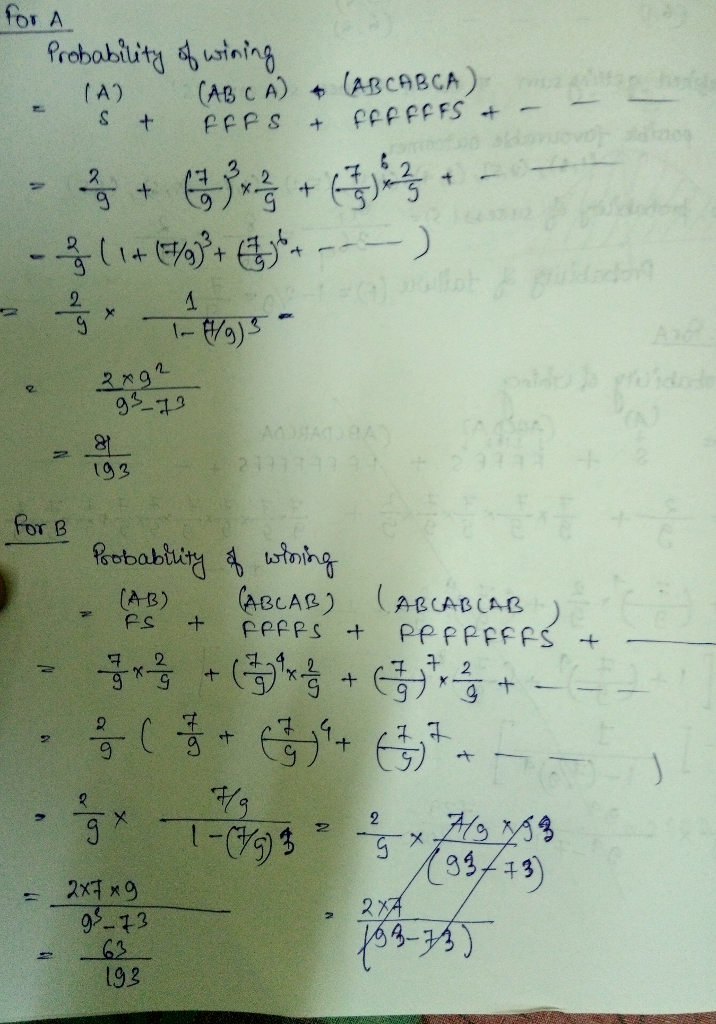 For A
Probability of wining
= (A) (ABCA) + (ABCABCA)
S + FFFS + FFFFFFS + - - -
= 2/9 + (7/9)^3 × 2/9 + (7/9)^6 × 2/9 + - -
= 2/9 (1 + (7/9)^3 + (7/9)^6 + - - - )
= 2/9 × 1/(1-(7/9)^3) =
= 2×9^2/(9^3-7^3)
= 81/193
For B
Probability of wining
= (AB) (ABCAB) (ABCABCAB)
FS + FFFFS + FFFFFFFS + -
= 7/9 × 2/9 + (7/9)^4 × 2/9 + (7/9)^7 × 2/9 + - - -
= 2/9 ( 7/9 + (7/9)^4 + (7/9)^7 + - - )
= 2/9 × (7/9)/(1-(7/9)^3) = 2/9 × (7/9 × 9^3)/(9^3-7^3)
= 2×7×9/(9^3-7^3) = 2×7/(9^3-7^3)
= 63/193